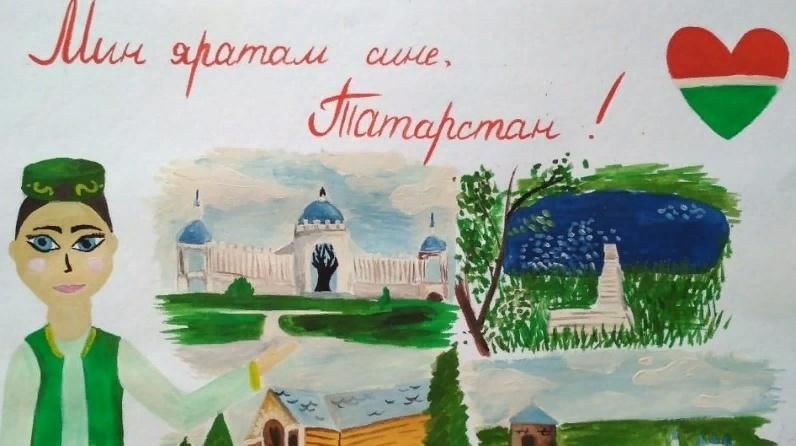 Мин яратам сине,
Татарстан!